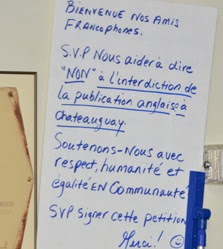 Bienvenue Nos Amis
Francophones.
S.V.P Nous aider à dire
"NON" à l'interdiction de
la publication anglaise à
Chateauguay.
Soutenons-Nous avec
respect, humanité et
égalité EN Communauté
SVP signer cette petition
Merci! ☺